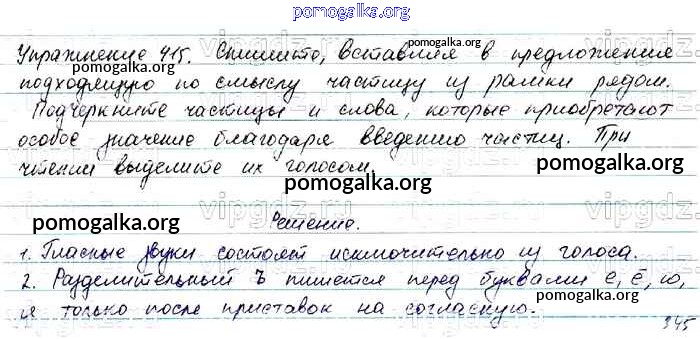 pomogalka.org
Упражнение 415. Спишите, вставляя в предложение
pomogalka.org
подходящую по смыслу частицу из рамки рядом.
pomogalka.org
Подчеркните частицы и слова, которые приобретают
особое значение благодаря введению частиц. При
чтении выделите их голосом.
pomogalka.org
pomogalka.org
Решение.
pomogalka.org
1. Гласные звуки состоят исключительно из голоса.
2. Разделительный Ъ пишется перед буквами е, ё, ю,
pomogalka.org
я только после приставок на согласную.
pomogalka.org
345